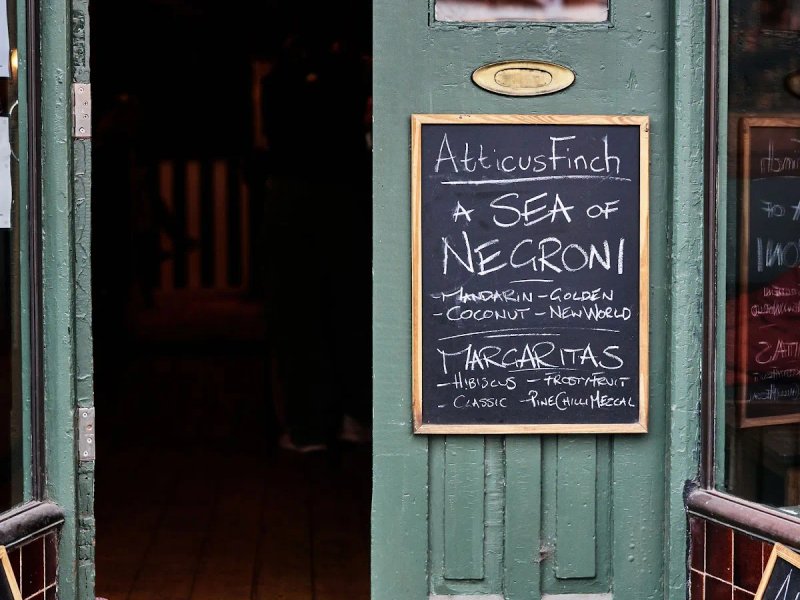 AtticusFinch
A SEA OF
NEGRONI
- MANDARIN - GOLDEN
- COCONUT - NEW WORLD
MARGARITAS
- HIBISCUS - FROSTY FRUIT
- CLASSIC - PINE CHILLI MEZCAL